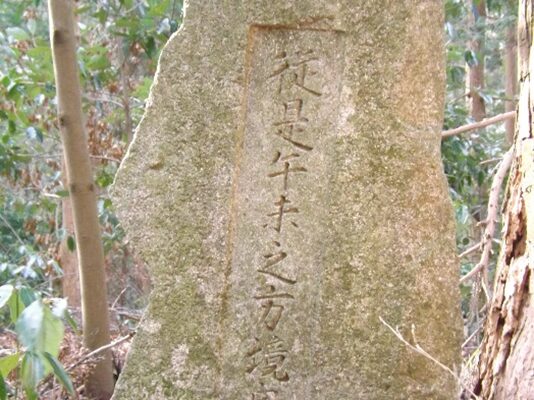 従是午未之方境